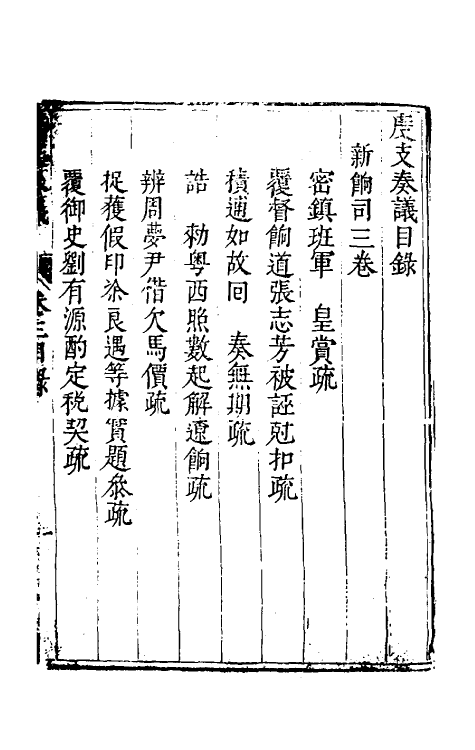 度支奏議目錄
新餉司三卷
密鎮班軍　皇賞疏
覆督餉道張志芳被誣尅扣疏
積逋如故囘　奏無期疏
請　勑粤西照數起解遼餉疏
辨周夢尹借欠馬價疏
捉獲假印徐良遇等據實題叅疏
覆御史劉有源酌定税契疏
卷三目錄
一